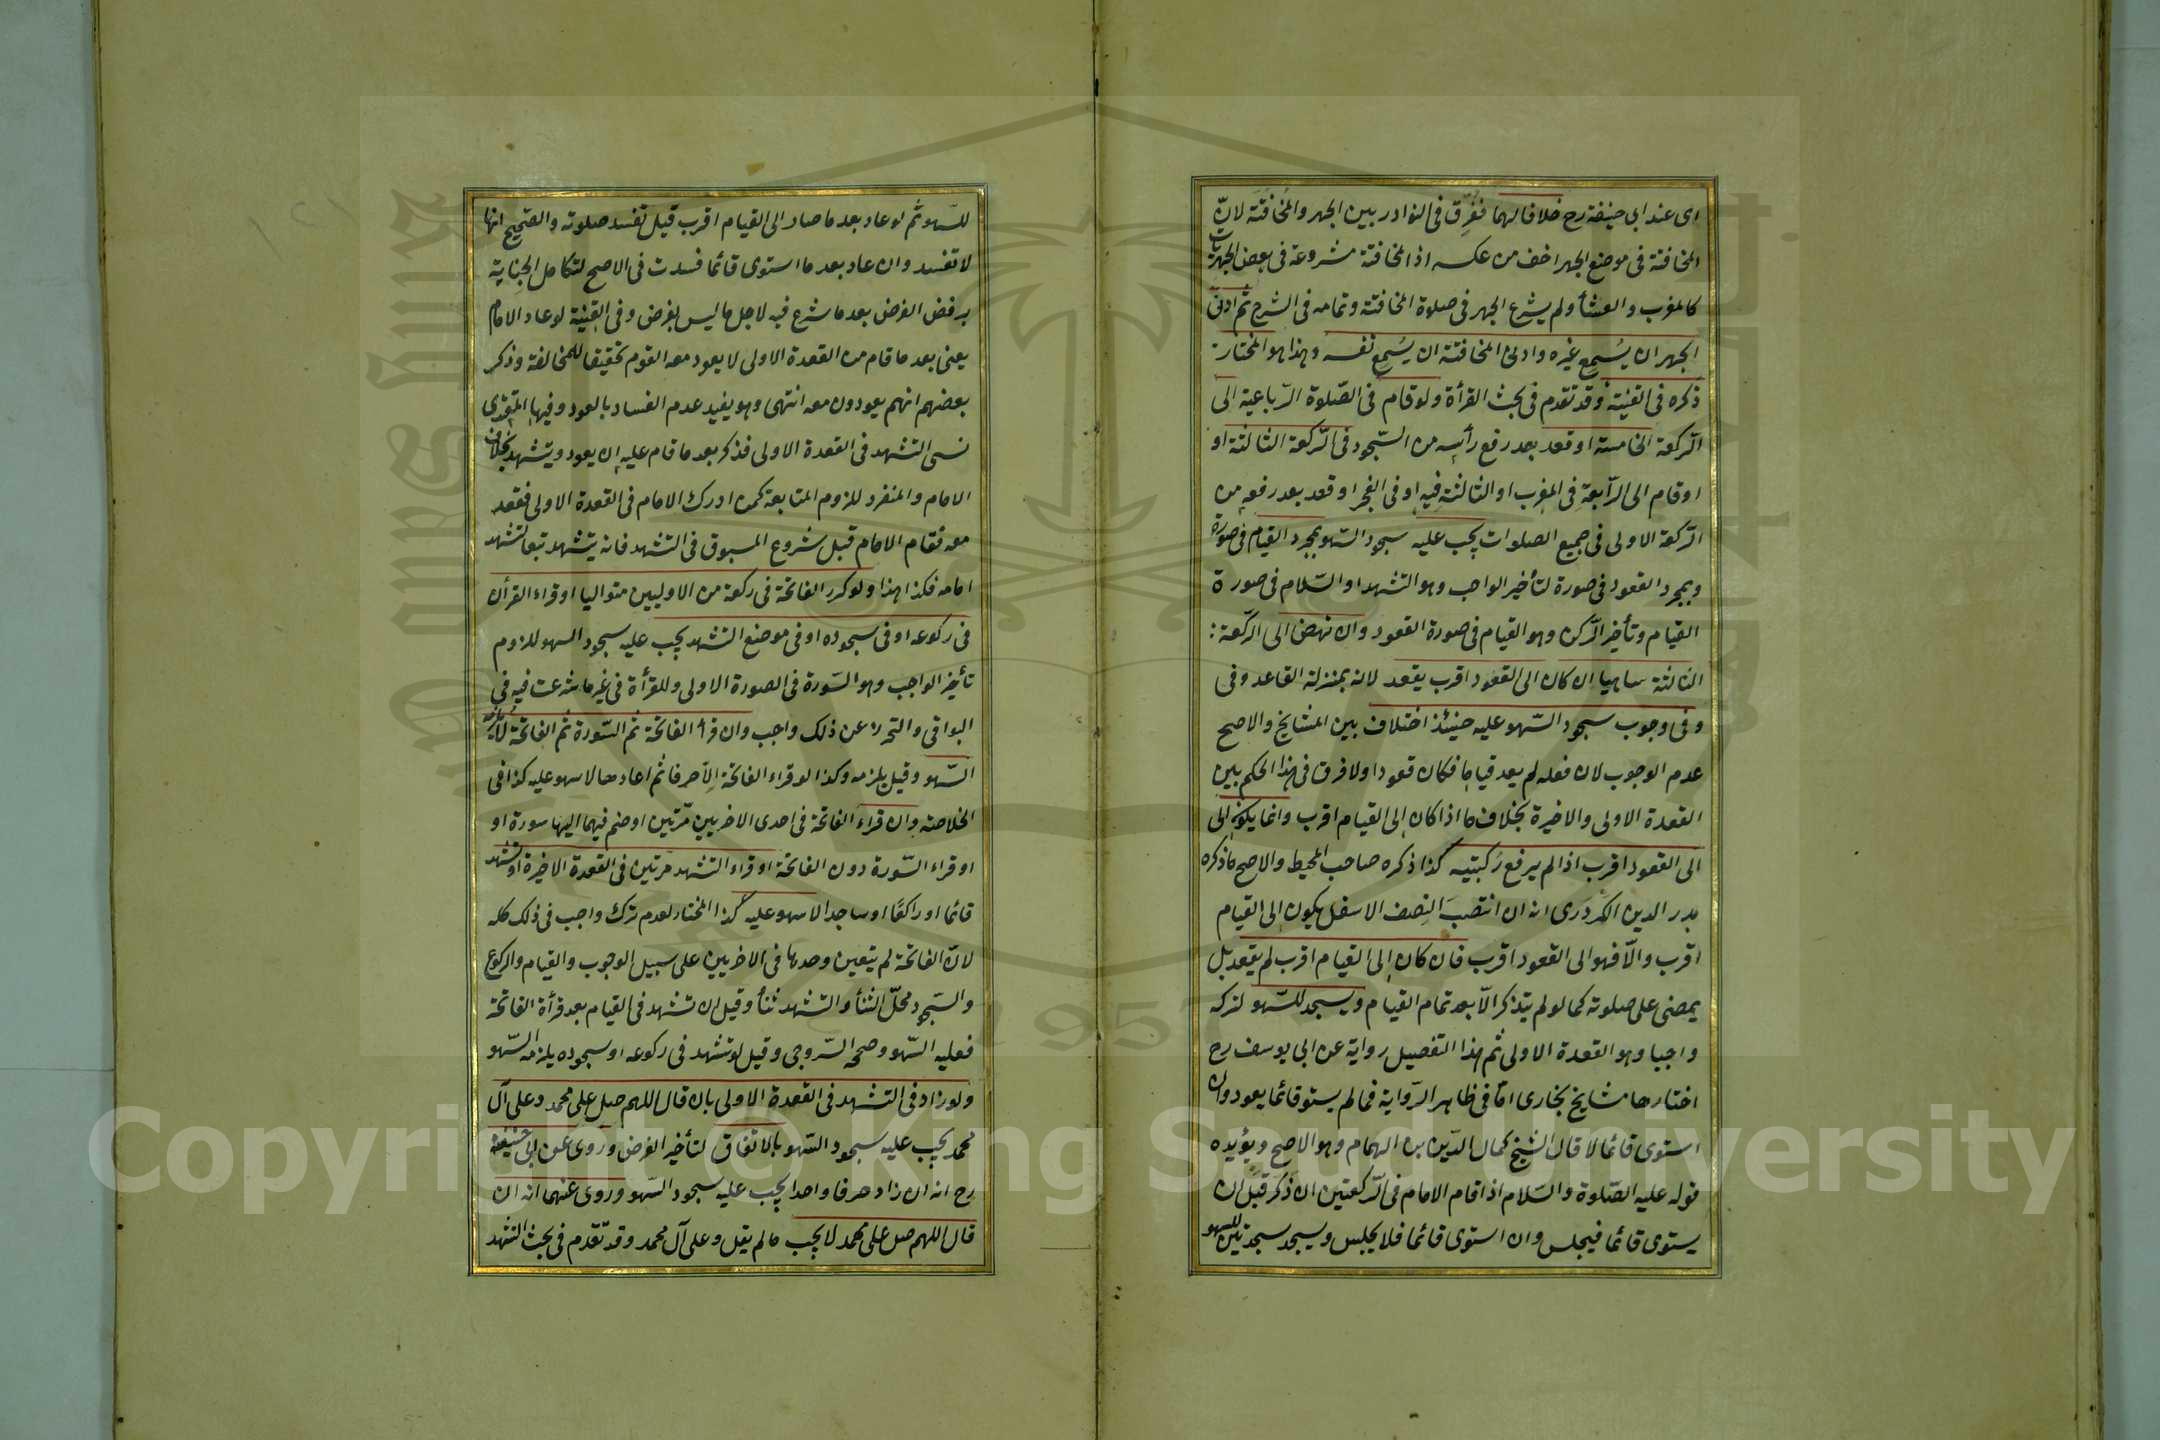 اى عند ابى حنيفة رح خلافا لهما ففرّق فى النوادر بين الجهر والمخافتة لانّ
المخافتة فى موضع الجهر اخف من عكسه اذ المخافتة مشروعة فى بعض الجهريات
كالمغرب والعشأ ولم يشرع الجهر فى صلوة المخافتة وتمامه فى الشرح ثم ادنى
الجهر ان يُسْمِع غيره وادنى المخافتة ان يُسمِع نفسه وهذا هو المختار
ذكره فى القنية وقد تقدم فى بحث القرأة ولو قام فى الصّلوة الرّباعية الى
الرّكعة الخامسة او قعد بعد رفع رأسه من السّجود فى الرّكعة الثالثة او
او قام الى الرّابعة فى المغرب او الثالثة فيه او فى الفجر او قعد بعد رفعه من
الرّكعة الاولى فى جميع الصلوات يجب عليه سجود السّهو بمجرد القيام فى صورة
وبمجرد القعود فى صورة لتأخير الواجب وهو التشهد او السّلام فى صورة
القيام وتأخير الرّكن وهو القيام فى صورة القعود وان نهض الى الرّكعة :
الثالثة ساهيا ان كان الى القعود اقرب يقعد لانه بمنزلة القاعد وفى
وفى وجوب سجود السّهو عليه حينئذ اختلاف بين المشايخ والاصح
عدم الوجوب لان فعله لم يعد قياما فكان قعودا ولا فرق فى هذا الحكم بين
القعدة الاولى والاخيرة بخلاف ما اذا كان الى القيام اقرب وانما يكون الى
الى القعود اقرب اذا لم يرفع ركبتيه كذا ذكره صاحب المحيط والاصح ما ذكره
بدر الدين الكردَرى انه ان انتصبَ النصف الاسفل يكون الى القيام
اقرب والّا فهو الى القعود اقرب فان كان الى القيام اقرب لم يقعد بل
يمضى على صلوته كما لو لم يتذكر الّا بعد تمام القيام ويسجد للسّهو لتركه
واجبا وهو القعدة الاولى ثم هذا التفصيل رواية عن ابى يوسف رح
اختارها مشايخ بخارى امّا فى ظاهر الرّواية فما لم يستو قائما يعود وان
استوى قائما لا قال الشيخ كمال الدّين بن الهمام وهو الاصح ويؤيده
قوله عليه الصّلوة والسّلام اذا قام الامام فى الرّكعتين ان ذكر قبل ان
يستوى قائما فيجلس وان استوى قائما فلا يجلس ويسجد سجدتين للسهو
للسّهو ثم لو عاد بعد ما صار الى القيام اقرب قيل تفسد صلوته والصّحيح انها
لا تفسد وان عاد بعد ما استوى قائما فسدت فى الاصح لتكامل الجناية
برفض الفرض بعد ما شرع فيه لاجل ما ليس بفرض وفى القنية لو عاد الامام
يعنى بعد ما قام من القعدة الاولى لا يعود معه القوم تحقيقا للمخالفة وذكر
بعضهم انهم يعودون معه انتهى وهو يفيد عدم الفساد بالعود وفيها المقتدى
نسى التشهد فى القعدة الاولى فذكر بعد ما قام عليه ان يعود ويتشهد بخلاف
الامام والمنفرد للزوم المتابعة كمن ادرك الامام فى القعدة الاولى فقعد
معه فقام الامام قبل شروع المسبوق فى التشهد فانه يتشهد تبعا لتشهد
امامه فكذا هذا ولو كرر الفاتحة فى ركعة من الاوليين متواليا او قراء القرأن
فى ركوعه او فى سجوده او فى موضع التشهد يجب عليه سجود السهو للزوم
تأخير الواجب وهو السّورة فى الصورة الاولى وللقرأة فى غير ما شرعت فيه فى
البواقى والتحرز عن ذلك واجب وان قرأ الفاتحة ثم السّورة ثم الفاتحة لا يلزمه
السّهو وقيل يلزمه وكذا لو قراء الفاتحة الّا حرفا ثم اعادها لا سهو عليه كذا فى
الخلاصة وان قراء الفاتحة فى احدى الاخريين مرّتين او ضم فيهما اليها سورة او
او قراء السّورة دون الفاتحة او قراء التشهد مرتين فى القعدة الاخيرة او تشهد
قائما او راكعًا او ساجدا لا سهو عليه كذا المختار لعدم ترك واجب فى ذلك كله
لانّ الفاتحة لم يتعين وحدها فى الاخريين على سبيل الوجوب والقيام والركوع
والسّجود محلّ الثنأ والتشهد ثنأ وقيل ان تشهد فى القيام بعد قرأة الفاتحة
فعليه السّهو وصححه السّروجى وقيل لو تشهد فى ركوعه او سجوده يلزمه السّهو
ولو زاد فى التشهد فى القعدة الاولى بان قال اللهم صل على محمد وعلى آل
محمد يجب عليه سجود السّهو بالاتفاق لتأخير الفرض وروى عن ابى حنيفة
رح انه ان زاد حرفا واحدا يجب عليه سجود السّهو وروى عنهما انه ان
قال اللهم صل على محمد لا يجب ما لم يقل وعلى آل محمد وقد تقدم فى بحث التشهد
Copyright © King Saud University
1957